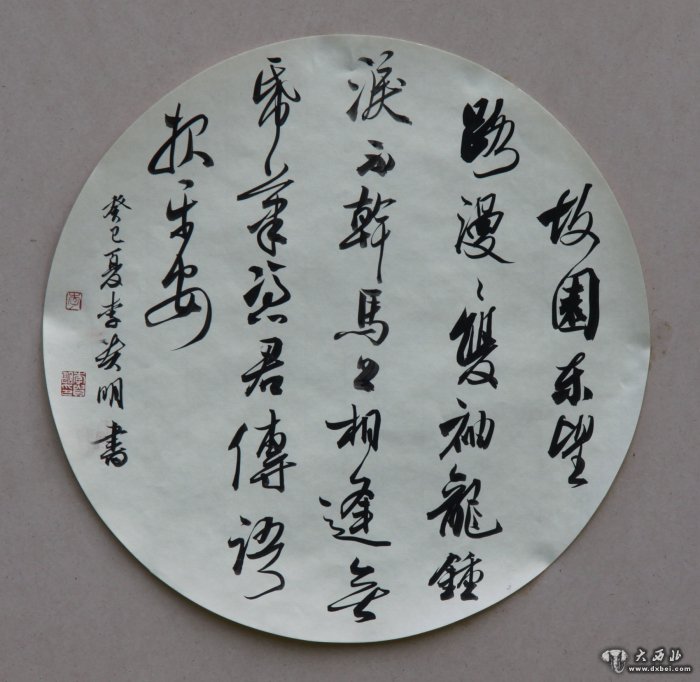 故園東望
路漫〻雙袖龍鍾
淚不幹馬上相逢無
帋筆憑君傳語
報平安
癸巳夏李英明書
大西北
www.dxbei.com